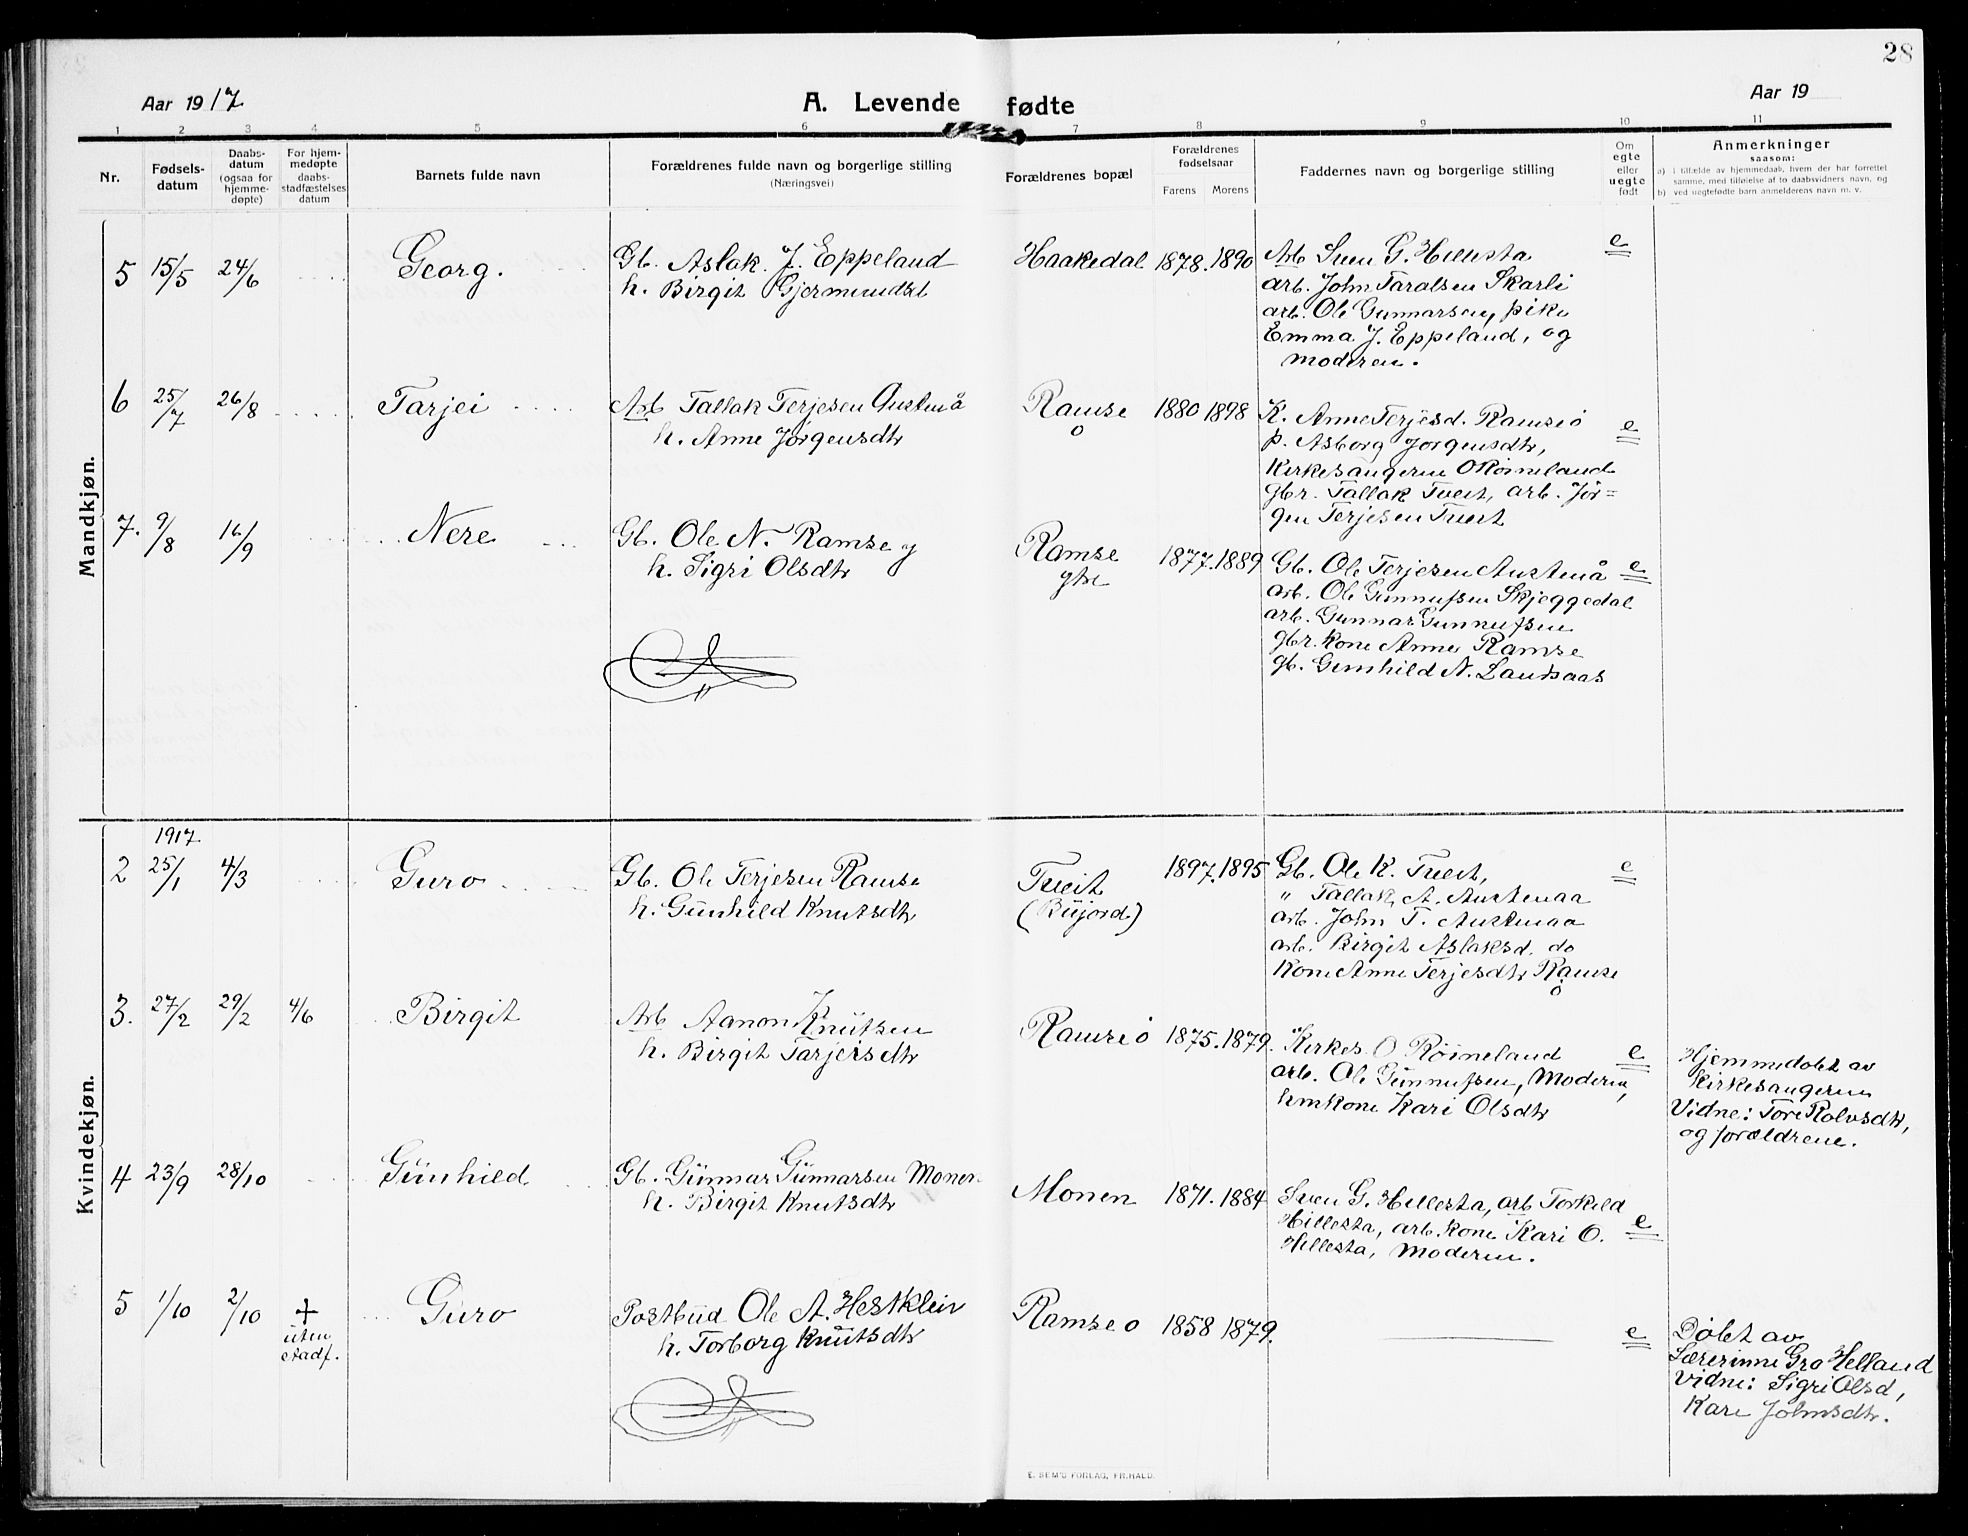 28
Aar 1917
A. Levende fødte
Aar 19
1 2 3 4 5 6 7 8 9 10 11
Nr.
Fødsels-
datum
Daabs-
datum
(ogsaa for
hjemme-
døpte)
For hjem-
medøpte
daabs-
stadfæstelses
datum
Barnets fulde navn
Forældrenes fulde navn og borgerlige stilling
(Næringsvei)
Forældrenes bopæl
Forældrenes
fødselsaar
Farens Morens
Faddernes navn og borgerlige stilling
Om
egte
eller
uegte
født
Anmerkninger
saasom:
a) i tilfælde av hjemmedaab, hvem der har forrettet
samme, med tilføielse af to daabsvidners navn, og
b) ved uegtefødte barn anmelderens navn m. v.
Mandkjøn.
5 15/5 24/6 Georg.
Gb. Aslak. J. Eppeland
h. Birgit Gjermundsd
Haakedal 1878. 1890
Arb Sven G. Hillesta
arb. John Taralsen Skarli
arb. Ole Gunnarsen, pike
Emma J. Eppeland, og
moderen.
e
6 25/7 26/8 Tarjei
Arb Tallak Terjesen Austenå
h. Anne Jørgensdtr
Ramse
o
1880 1898
K. Anne Terjesd. Ramseø
p. Asborg Jørgensdtr,
Kirkesangeren O Røineland
gbr. Tallak Tveit, arb. Jør=
gen Terjesen Tveit
e
7. 9/8 16/9 Nere
Gb. Ole N. Ramse y
h. Sigri Olsdtr
Ramse
ytre
1877. 1889
Gb. Ole Terjesen Austenå
arb. Ole Gunnufsen Skjeggedal
arb. Gunnar Gunnufsen
gbr. kone Anne Ramse
gb. Gunhild N. Landsaas
e
Kvindekjøn.
1917
2 25/1 4/3 Guro
Gb. Ole Terjesen Ramse
h. Gunhild Knutsdtr
Tveit
(Bujord.)
1897. 1895
Gb. Ole K. Tveit,
" Tallak A. Austenaa
arb. John T. Austenaa
arb. Birgit Aslaksd. do
Kone Anne Terjesdtr Ramse
ø
e
3. 27/2 29/2 4/6 Birgit
Arb Aanon Knutsen
h. Birgit Tarjeisdtr
Ramse ø 1875. 1879.
Kirkes. O Røineland
arb. Ole Gunnufsen, Moderen,
hmkone Kari Olsdtr
e
Hjemmedøbt av
kirkesangeren
Vidne: Tore Rolvsdtr,
og forældrene.
4 23/9 28/10 Gunhild
Gb. Gunnar Gunnarsen Monen
h. Birgit Knutsdtr
Monen 1871. 1884
Sven G. Hillesta, arb Torkild
Hillesta, arb. kone Kari O.
Hillesta, moderen.
e
5 1/10 2/10 +
uten
stadf.
Guro
Postbud Ole A. Hestklein
h. Torborg Knutsdtr
Ramse o 1858 1879.
e
Døbt av
Lærerinne Gro Helland
Vidne: Sigri Olsd,
Kari Johnsdtr.
E. SEM'S FORLAG, FR.HALD.